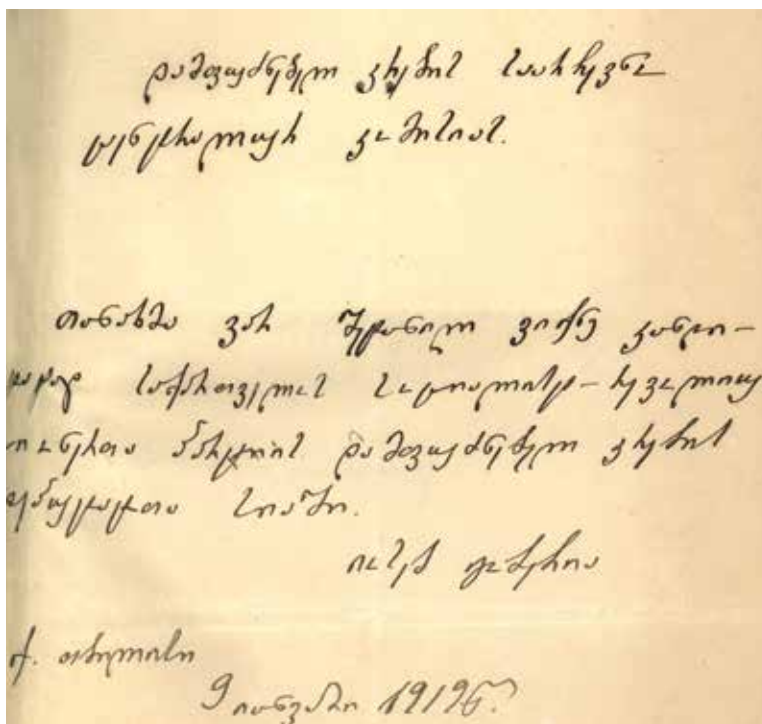 დამფუძნებელი კრების საარჩევნო
ცენტრალურ კომისიას.
თანახმა ვარ შეტანილი ვიქნე კანდი-
დატად საქართველოს სოციალისტ-რევოლიუც
იონერთა პარტიის დამფუძნებელი კრების
დეპუტატთა სიაში.
იოსებ
ქ. თბილისი
9 იანვარი 1919წ.